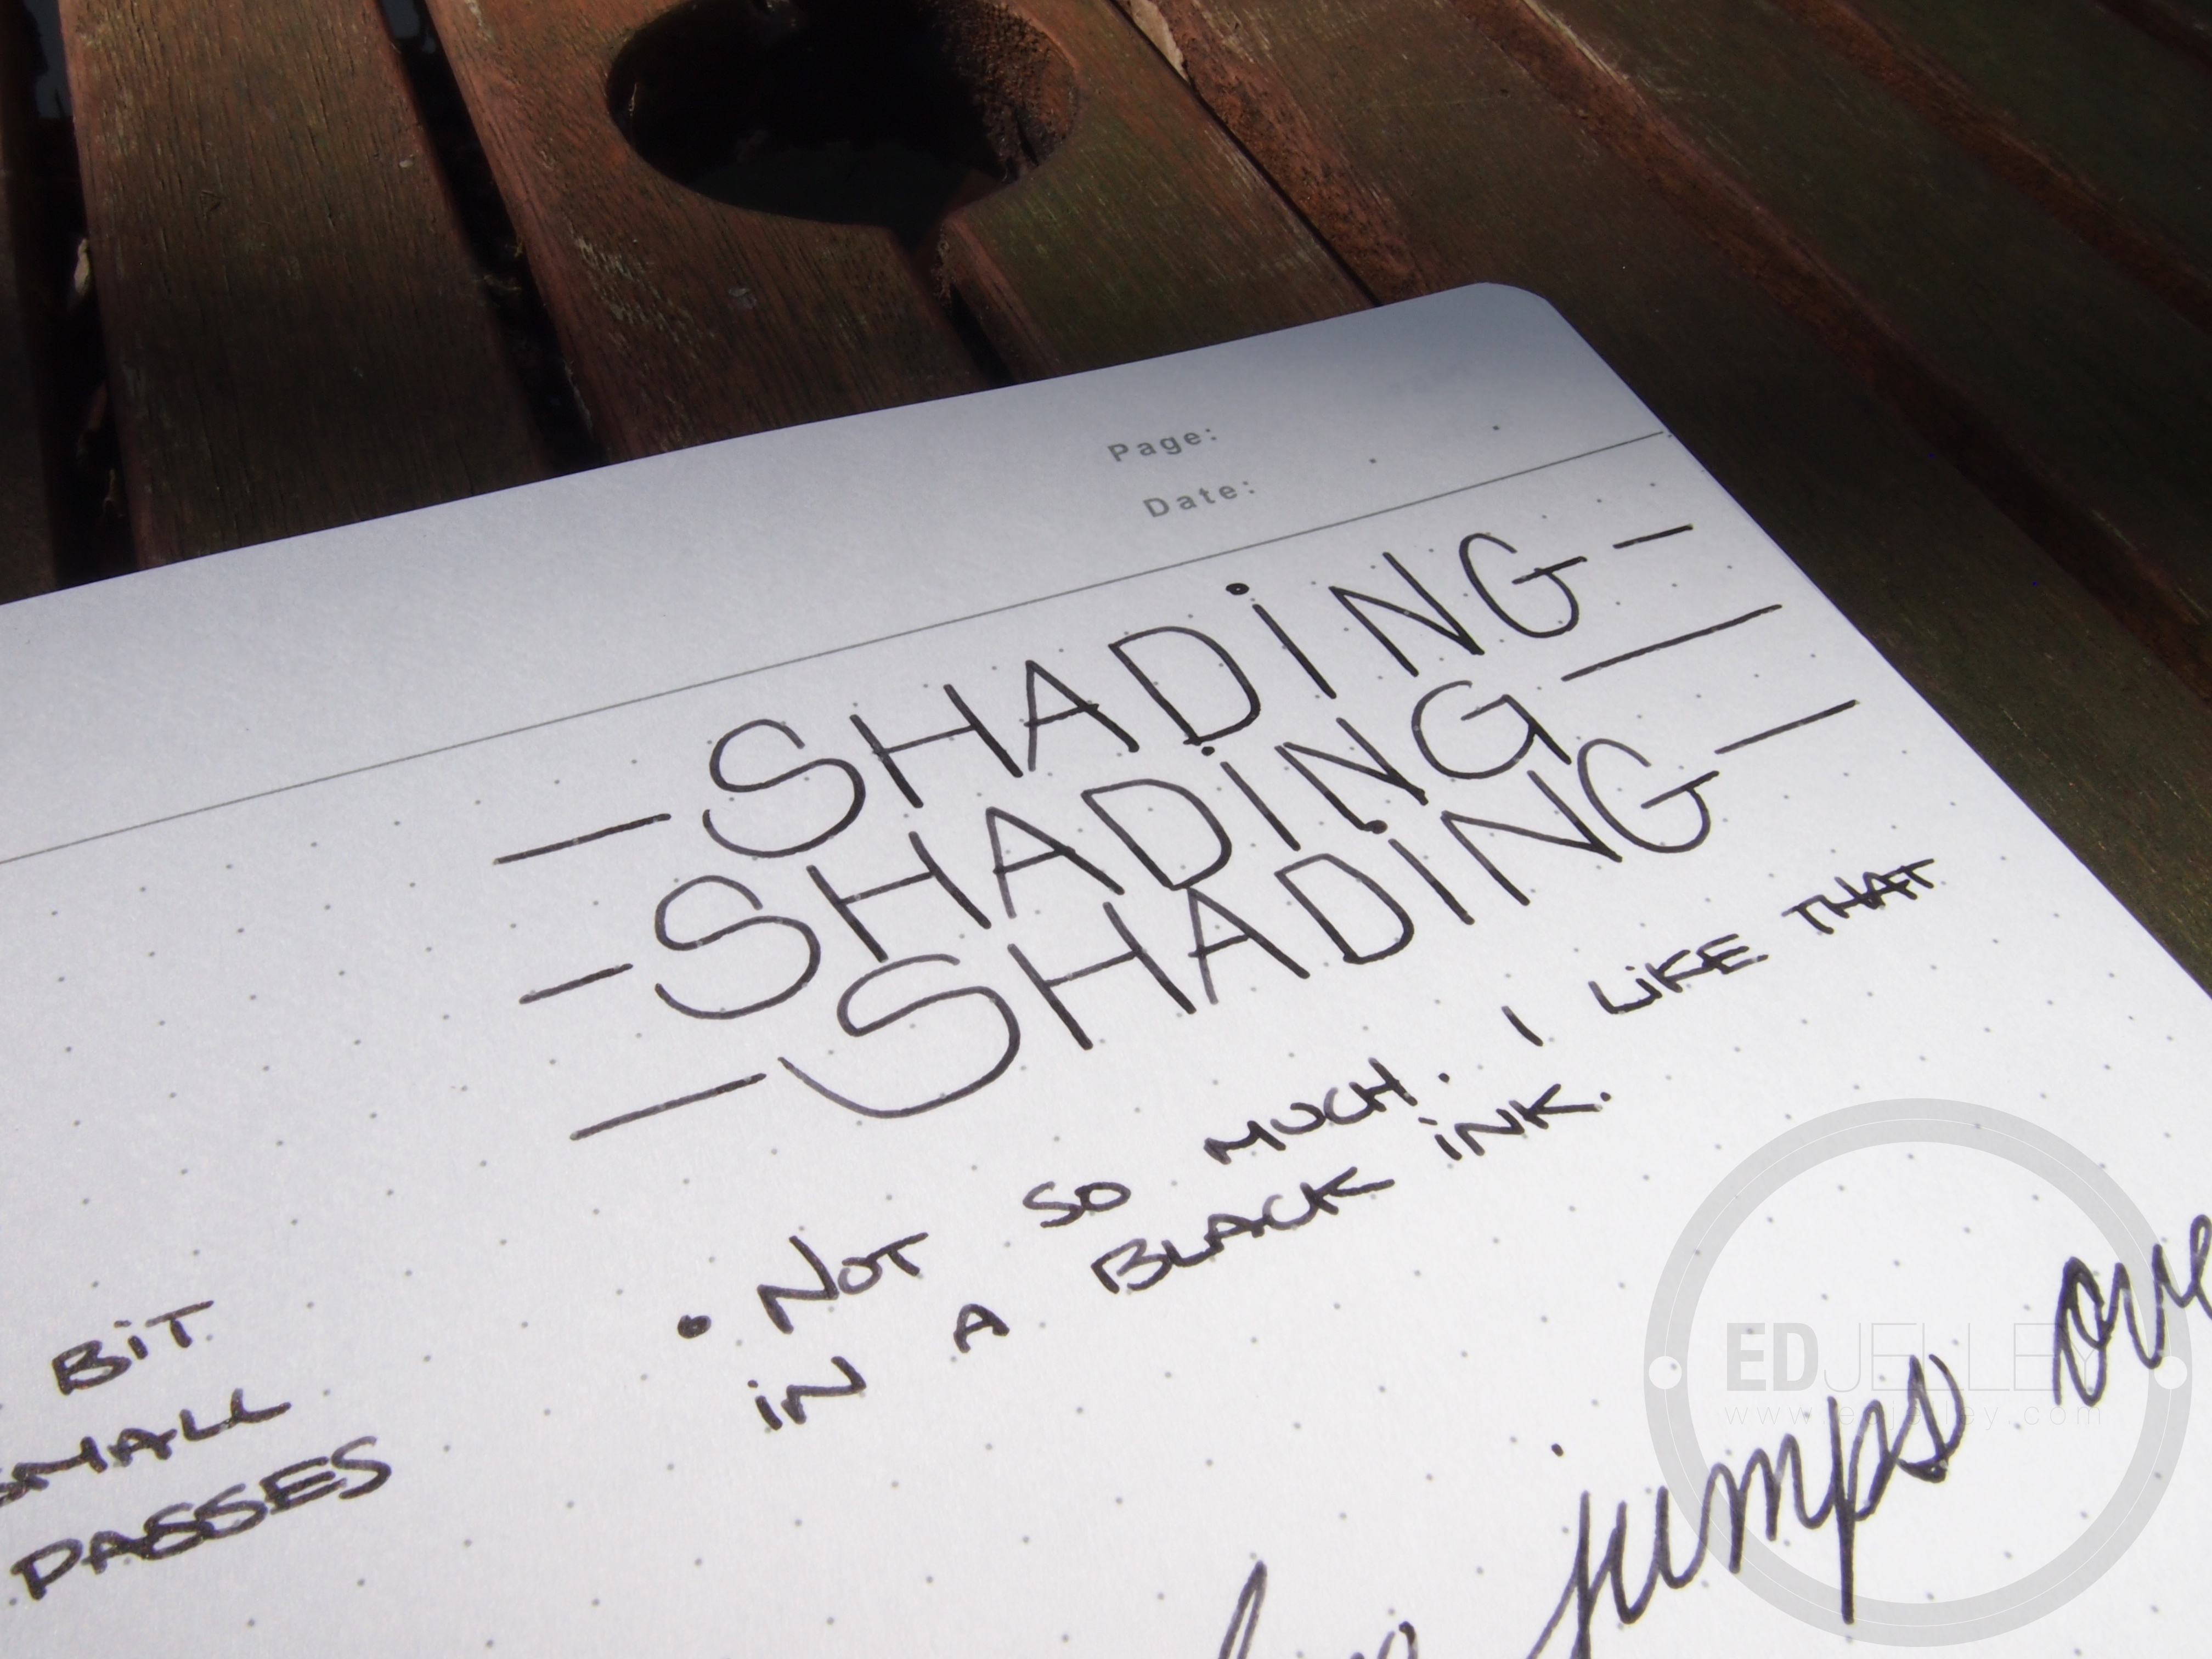 Page:
Date:
-SHADiNG-
-SHADiNG-
-SHADiNG-
• NOT SO MUCH. I LiKE THAT
iN A BLACK iNK.
BiT
SMALL
PASSES
jumps
EDJELLEY
www.edjelley.com